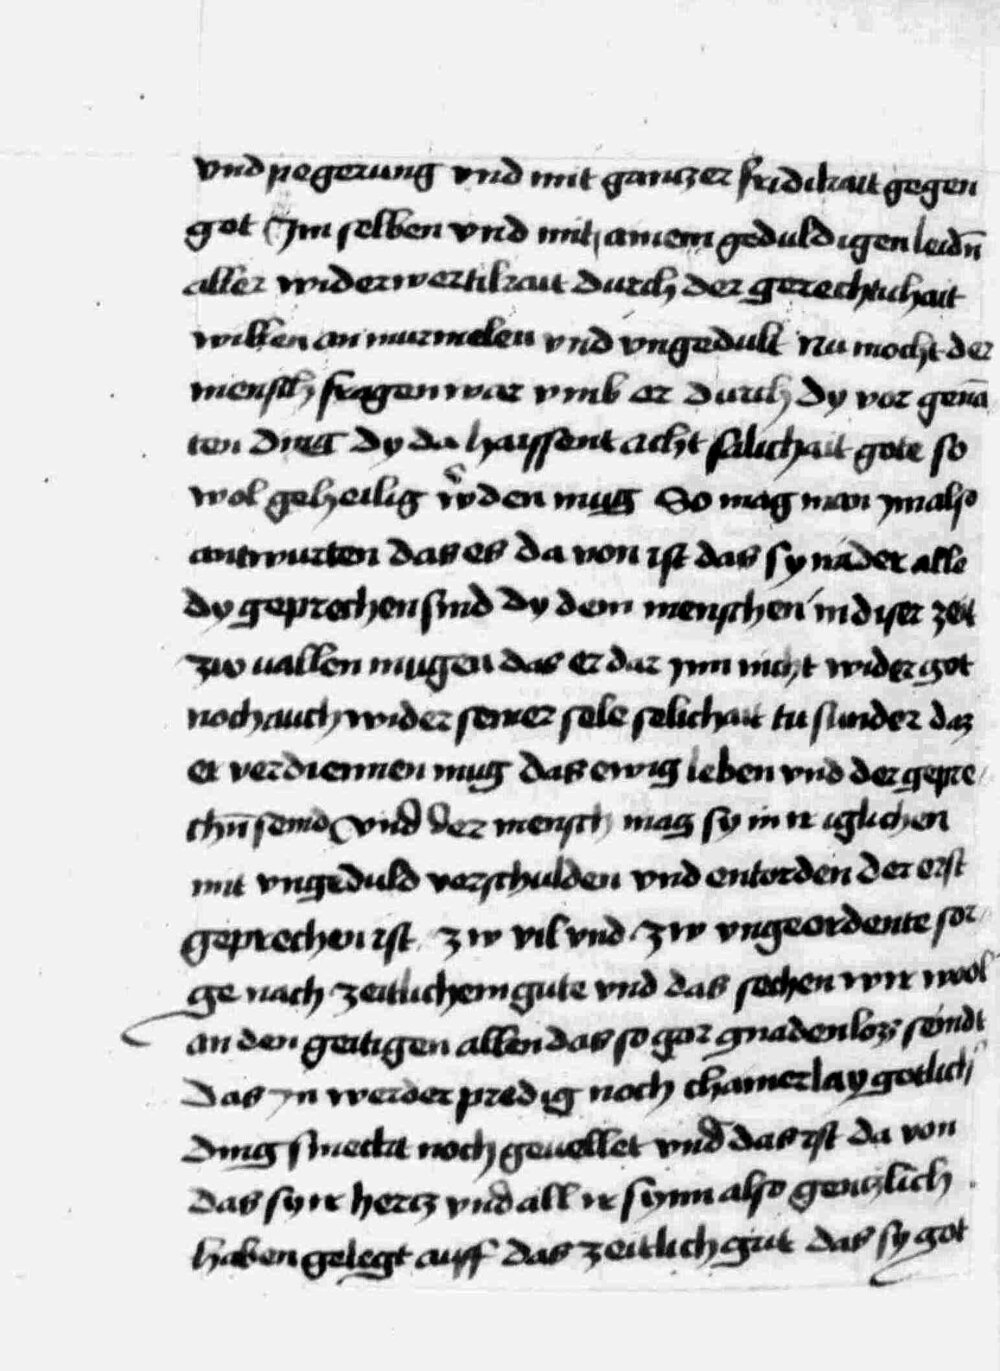 vnd pegerung vnd mit ganczer fridikait gegen
got Im selben vnd mit ainem geduldigen leidn̄
aller widerwertikait durch der gerechtichait
willen an murmelen vnd vngedult Nu mocht der
mensch fragen war vmb er durch dy vor genā
ten ding dy da haissent acht sälichait gote so
wol geheilig wͦden mug So mag man ym also
antwurten das es da von ist das sy wider alle
dy geprechen sind dy dem menschen in diser zeit
zw uallen mugen das er dar ynn nicht wider got
noch auch wider seiner sele selichait tu sunder daz
er verdiennen mug das ewig leben vnd der gepre/
chn̄ seind vnd der mensch mag sy in ir iglichen
mit vngeduld verschulden vnd entorden der erst
geprechen ist zw vil vnd zw vngeordente sor/
ge nach zeitlichem gute vnd das sechen wir wool
an den geitigen allen das so gar gnadenlos seindt
Das yn weder predig noch chainerlay gotlich
ding smeckt noch geuellet vnd das ist da von
das sy ir hertz vnd all ir synn also gentzlich
haben gelegt auff das zeitlich gut das sy got